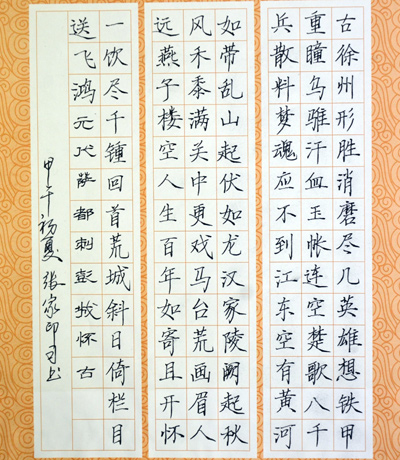 古徐州形胜消磨尽几英雄想铁甲
重瞳乌骓汗血玉帐连空楚歌八千
兵散料梦魂应不到江东空有黄河
如带乱山起伏如龙汉家陵阙起秋
风禾黍满关中更戏马台荒画眉人
远燕子楼空人生百年如寄且开怀
一饮尽千锺回首荒城斜日倚栏目
送飞鸿元代萨都刺彭城怀古
甲午初夏张家印习书